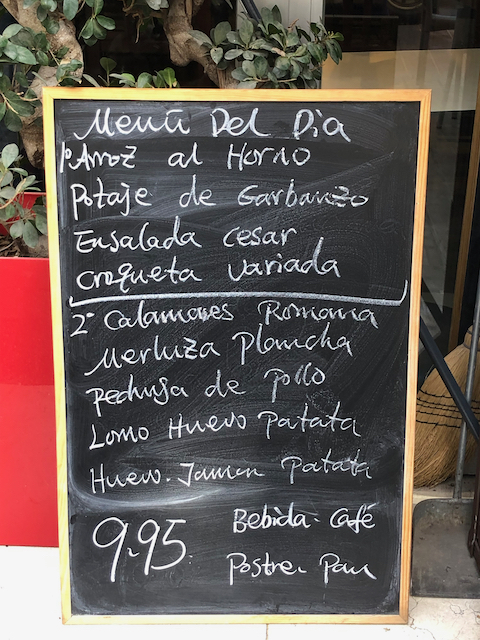 Menú Del Día
1º Arroz al Horno
Potaje de Garbanzo
Ensalada cesar
croqueta variada
2º Calamares Romana
Merluza plancha
pechuja de pollo
Lomo Huevo patata
Huevo. Jamon patata
9.95.
Bebida. Café
Postre. Pan